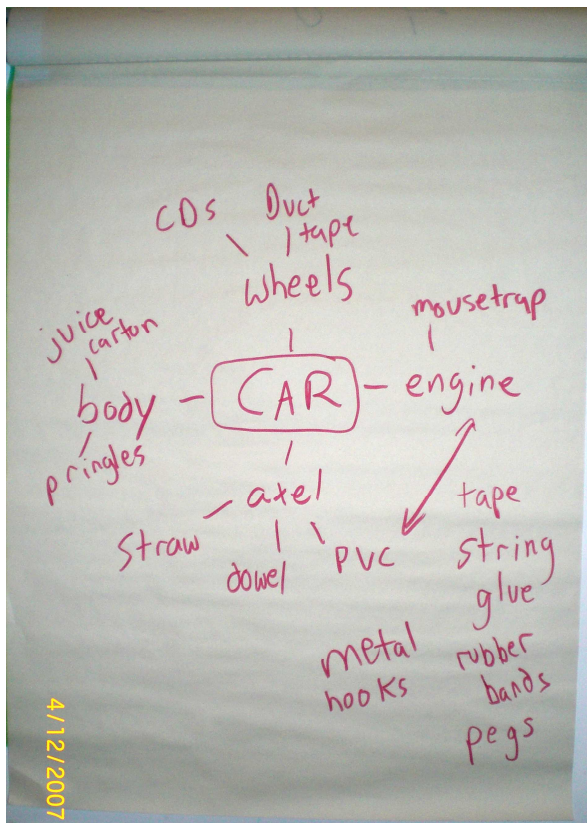 CDs
Duct
tape
wheels
mousetrap
juice
carton
body
CAR
engine
pringles
axel
straw
dowel
PVC
tape
string
glue
metal
hooks
rubber
bands
pegs
4/12/2007